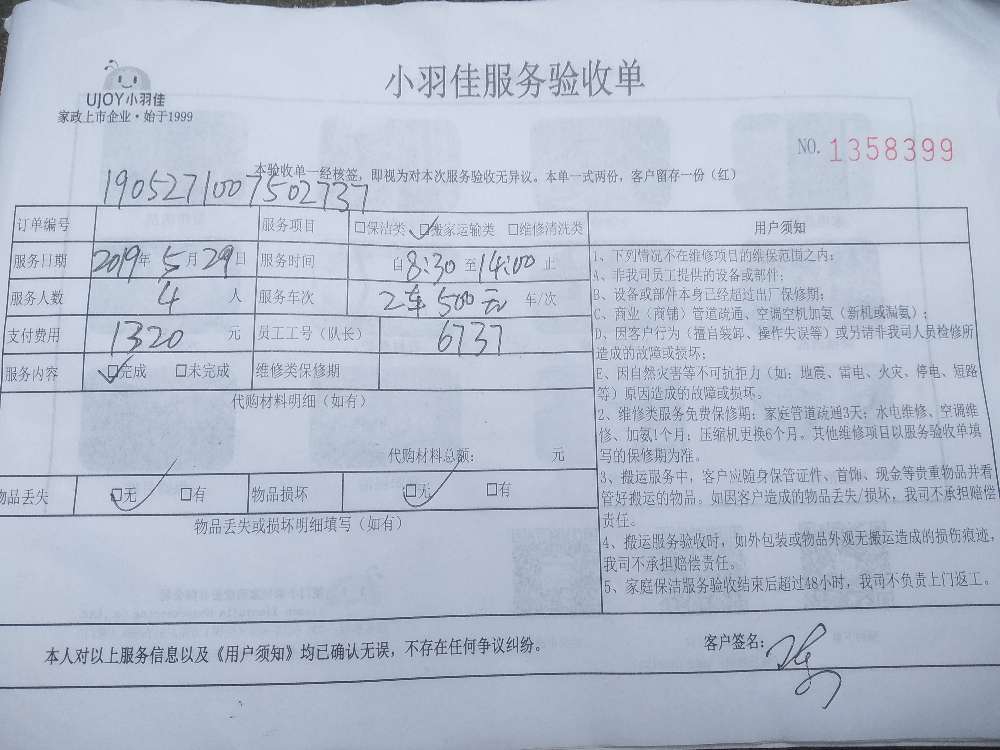 小羽佳服务验收单
UJOY小羽佳
家政上市企业·始于1999
NO. 1358399
本验收单一经核签，即视为对本次服务验收无异议。本单一式两份，客户留存一份（红）
1905271007502737
订单编号 服务项目 □保洁类 ☑搬家运输类 □维修清洗类
服务日期 2019年5月29日 服务时间 自8:30至14:00止
服务人数 4 人 服务车次 2车500元 车/次
支付费用 1320 元 员工工号（队长） 6737
服务内容 ☑完成 □未完成 维修类保修期
代购材料明细（如有）
代购材料总额： 元
物品丢失 ☑无 □有 物品损坏 ☑无 □有
物品丢失或损坏明细填写（如有）
用户须知
1、下列情况不在维修项目的维保范围之内：
A、非我司员工提供的设备或部件；
B、设备或部件本身已经超过出厂保修期；
C、商业（商铺）管道疏通、空调空机加氨（新机或漏氨）；
D、因客户行为（擅自装卸、操作失误等）或另请非我司人员检修所
造成的故障或损坏；
E、因自然灾害等不可抗拒力（如：地震、雷电、火灾、停电、短路
等）原因造成的故障或损坏。
2、维修类服务免费保修期：家庭管道疏通3天；水电维修、空调维
修、加氨1个月；压缩机更换6个月，其他维修项目以服务验收单填
写的保修期为准。
3、搬运服务中，客户应随身保管证件、首饰、现金等贵重物品并看
管好搬运的物品。如因客户造成的物品丢失/损坏，我司不承担赔偿
责任。
4、搬运服务验收时，如外包装或物品外观无搬运造成的损伤痕迹，
我司不承担赔偿责任。
5、家庭保洁服务验收结束后超过48小时，我司不负责上门返工。
本人对以上服务信息以及《用户须知》均已确认无误，不存在任何争议纠纷。
客户签名：